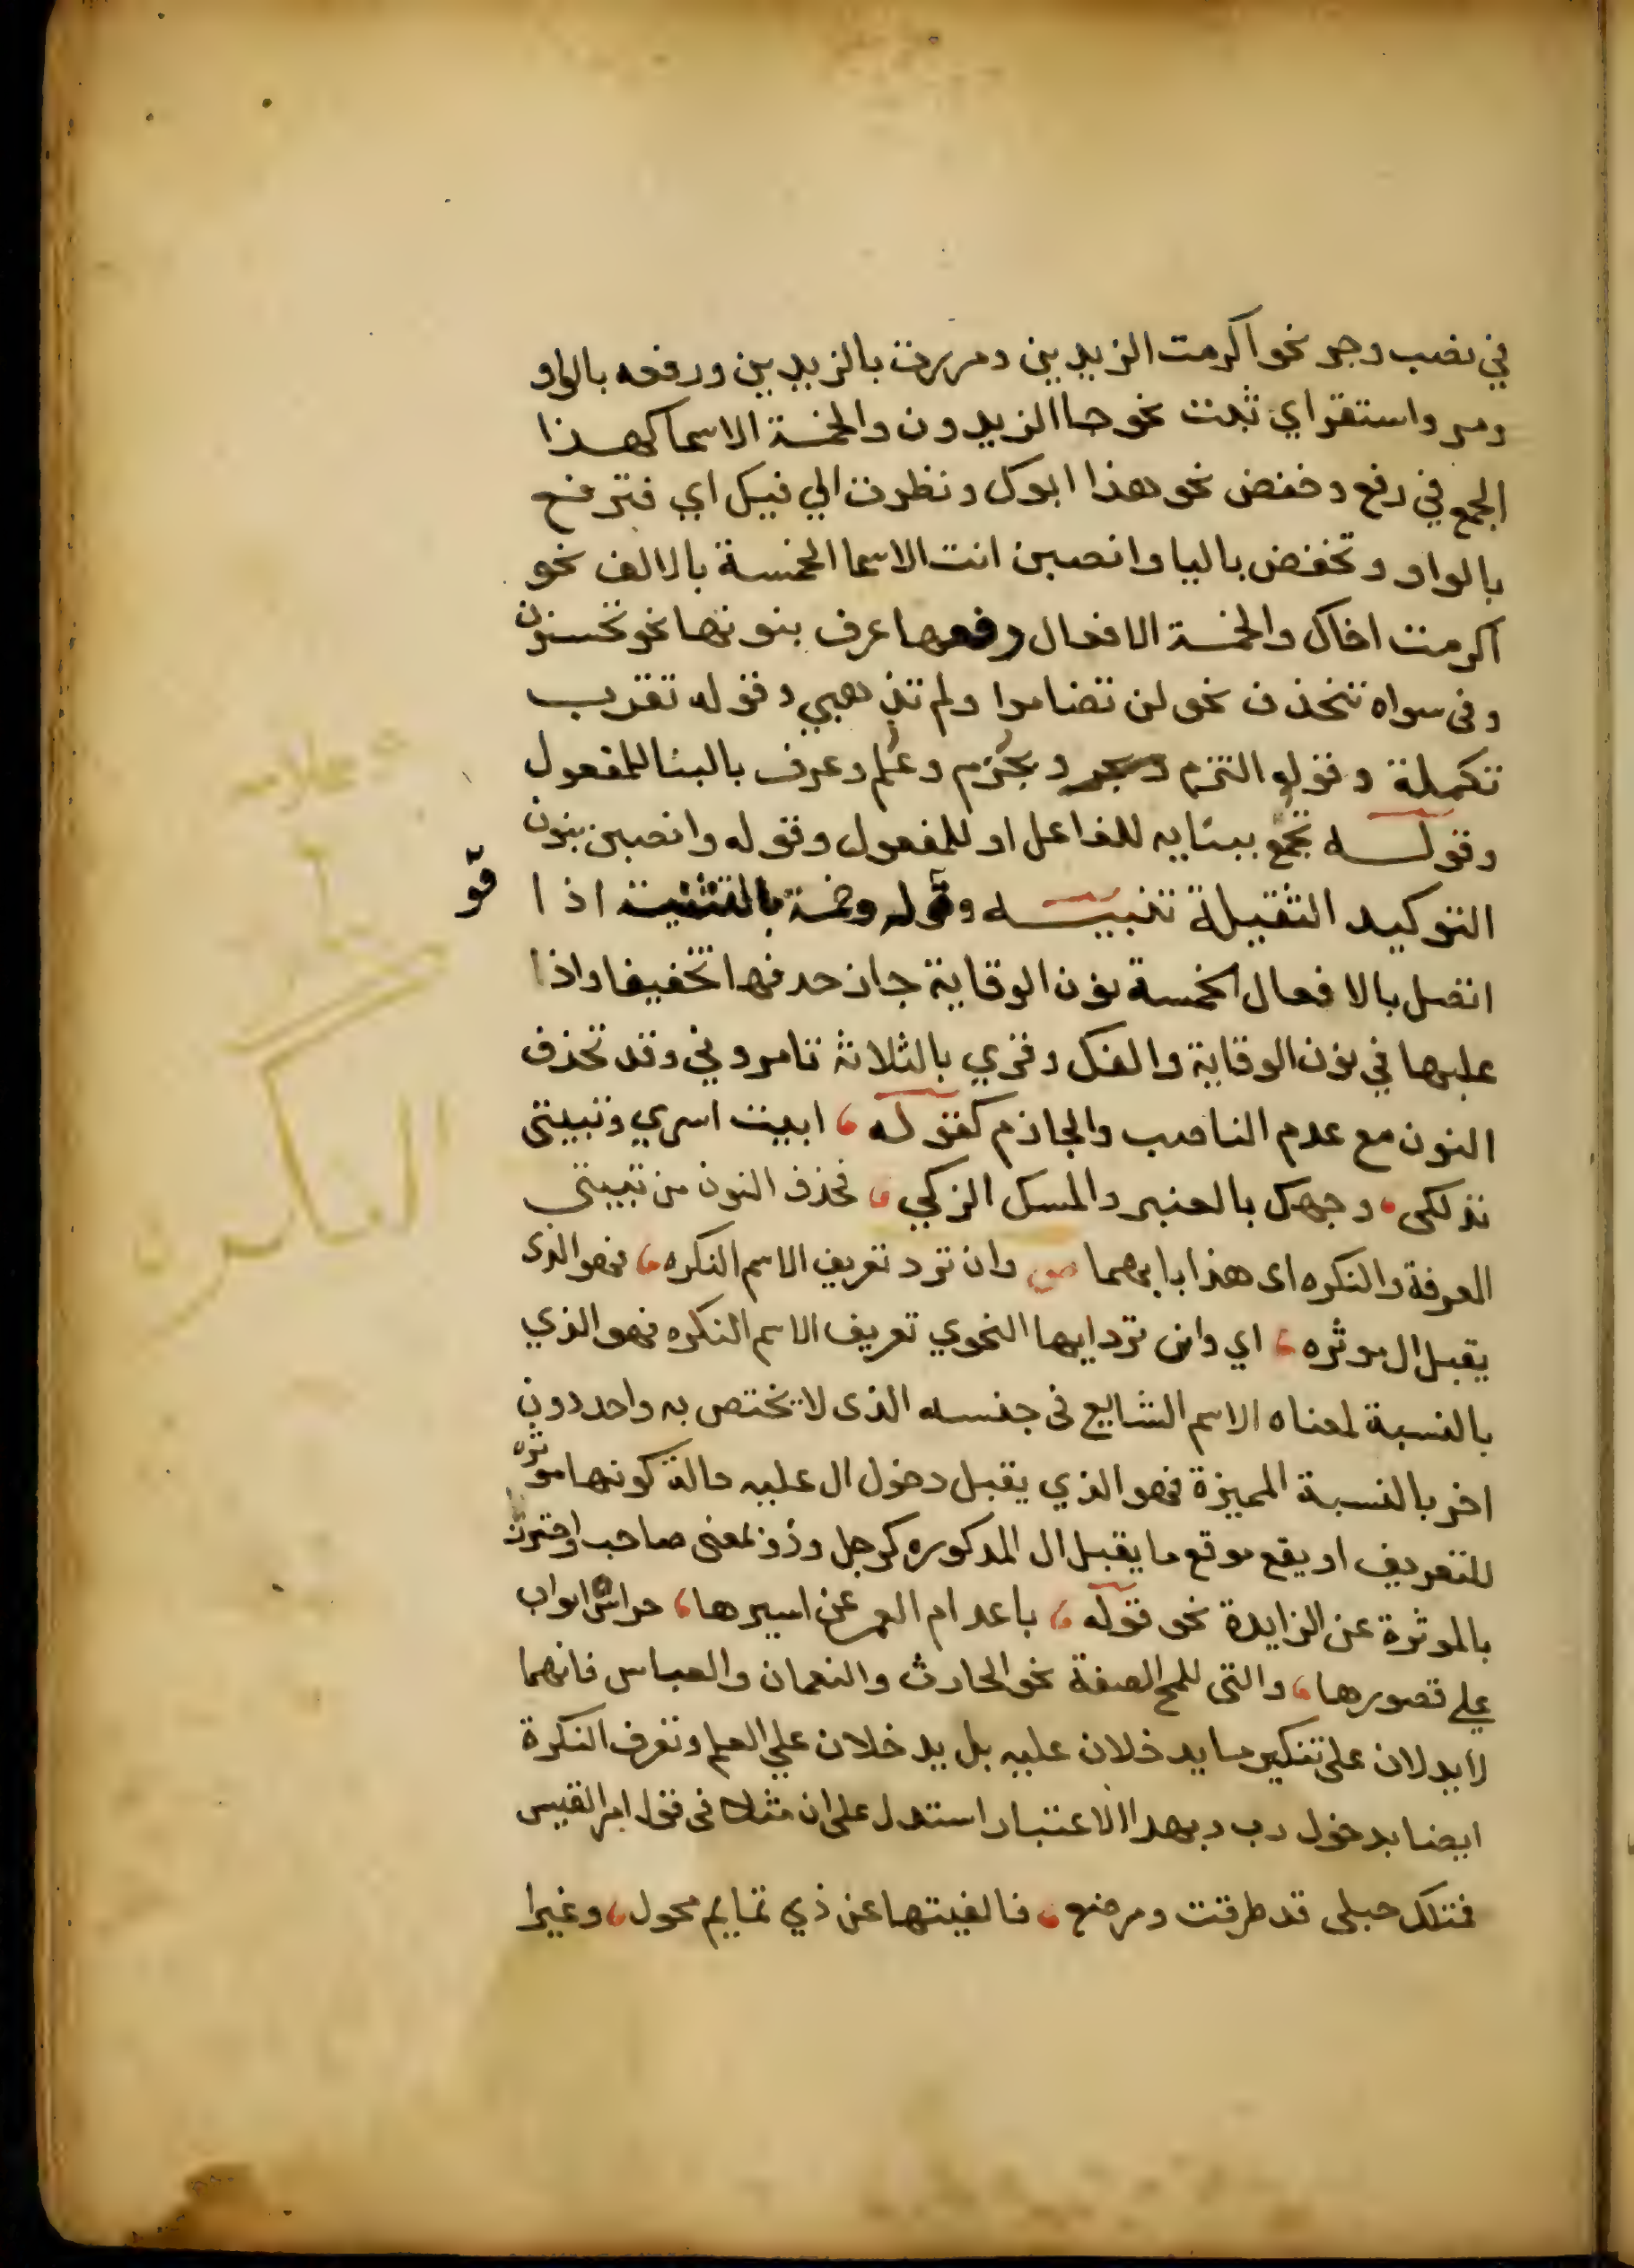 في نصب وجر نحو اكرمت الزيدين ومررت بالزيدين ورفعه بالواو
ومر واستقر اي ثبت نحو جا الزيدون والخمسة الاسما كهذا
الجمع في رفع وخفض نحو هذا ابوك ونظرت الي فيك اي فترفع
بالواو وتخفض باليا وانصبن انت الاسما الخمسة بالالف نحو
اكرمت اخاك والخمسة الافعال رفعها عرف بنونها نحو تحسنون
وفى سواه تنحذف نحو لن تضاموا ولم تذهبي وقوله تقرب
تكملة وقوله التزم وبجزم وعلم وعرف بالبنا للمفعول
وقوله تجمع ببنايه للفاعل او للمفعول وقوله وانصبن بنون
التوكيد الثقيلة تنبيه وقوله وخمسة بالتثنية اذا
اتصل بالافعال الخمسة نون الوقاية جاز حدفها تخفيفا واذا
عليها في نون الوقاية والفك وقري بالثلاثة تامروني وقد تحذف
النون مع عدم الناصب والجازم كقوله ، ابيت اسري وتبيتى
تدلكى ، وجهك بالعنبر والمسك الزكي ، فحذف النون من تبيتى
المعرفة والنكره اى هذا بابهما ص وان ترد تعريف الاسم النكره ، فهو الذى
يقبل ال موثره ، اي وان ترد ايها النحوي تعريف الاسم النكره فهو الذي
بالنسبة لمعناه الاسم الشايع فى جنسه الذى لا يختص به واحد دون
اخر بالنسبة المميزة فهو الذي يقبل دخول ال عليه حالة كونها موثره
للتعريف او يقع موقع ما يقبل ال المدكوره كرجل وذو بمعنى صاحب واحترز
بالموثرة عن الزايدة نحو قوله ، باعد ام العمر عن اسيرها ، حراس ابواب
علي قصورها ، والتى للمح الصفة نحو الحارث والنعمان والعباس فانهما
لا يدلان على تنكير ما يدخلان عليه بل يدخلان علي العلم وتعرف النكرة
ايضا بدخول رب وبهدا الاعتبار استدل على ان مثلك فى قول امر القيس
فمثلك حبلى قد طرقت ومرضع ، فالهيتها عن ذي تمايم محول ، وغيرا